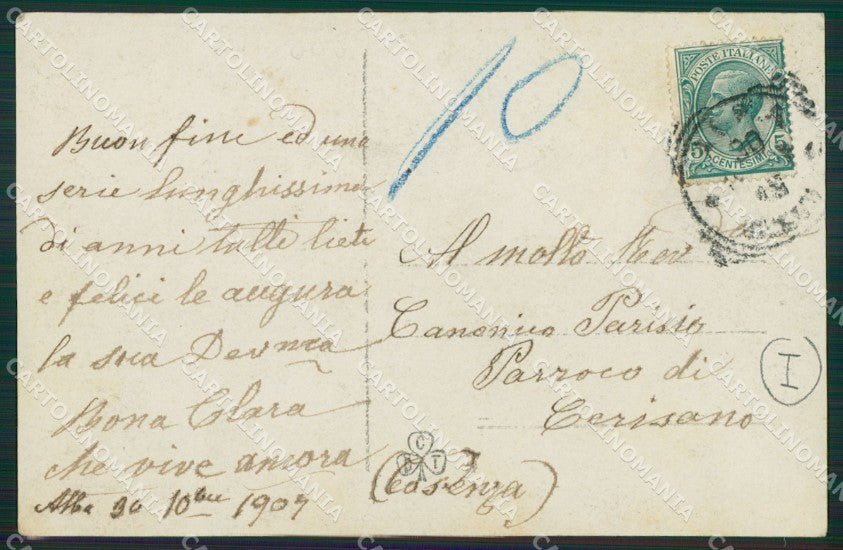 Buon fine ed una
serie lunghissima
di anni tutti lieti
e felici le augura
la sua Dev.ma
Bona Clara
che vive ancora
Alba 30 10bre 1907
10
POSTE ITALIANE
5 CENTESIMI 5
Al molto Rev
Canonico Parisio
Parroco di
Cerisano
(Cosenza)
I
C
T
CARTOLINOMANIA